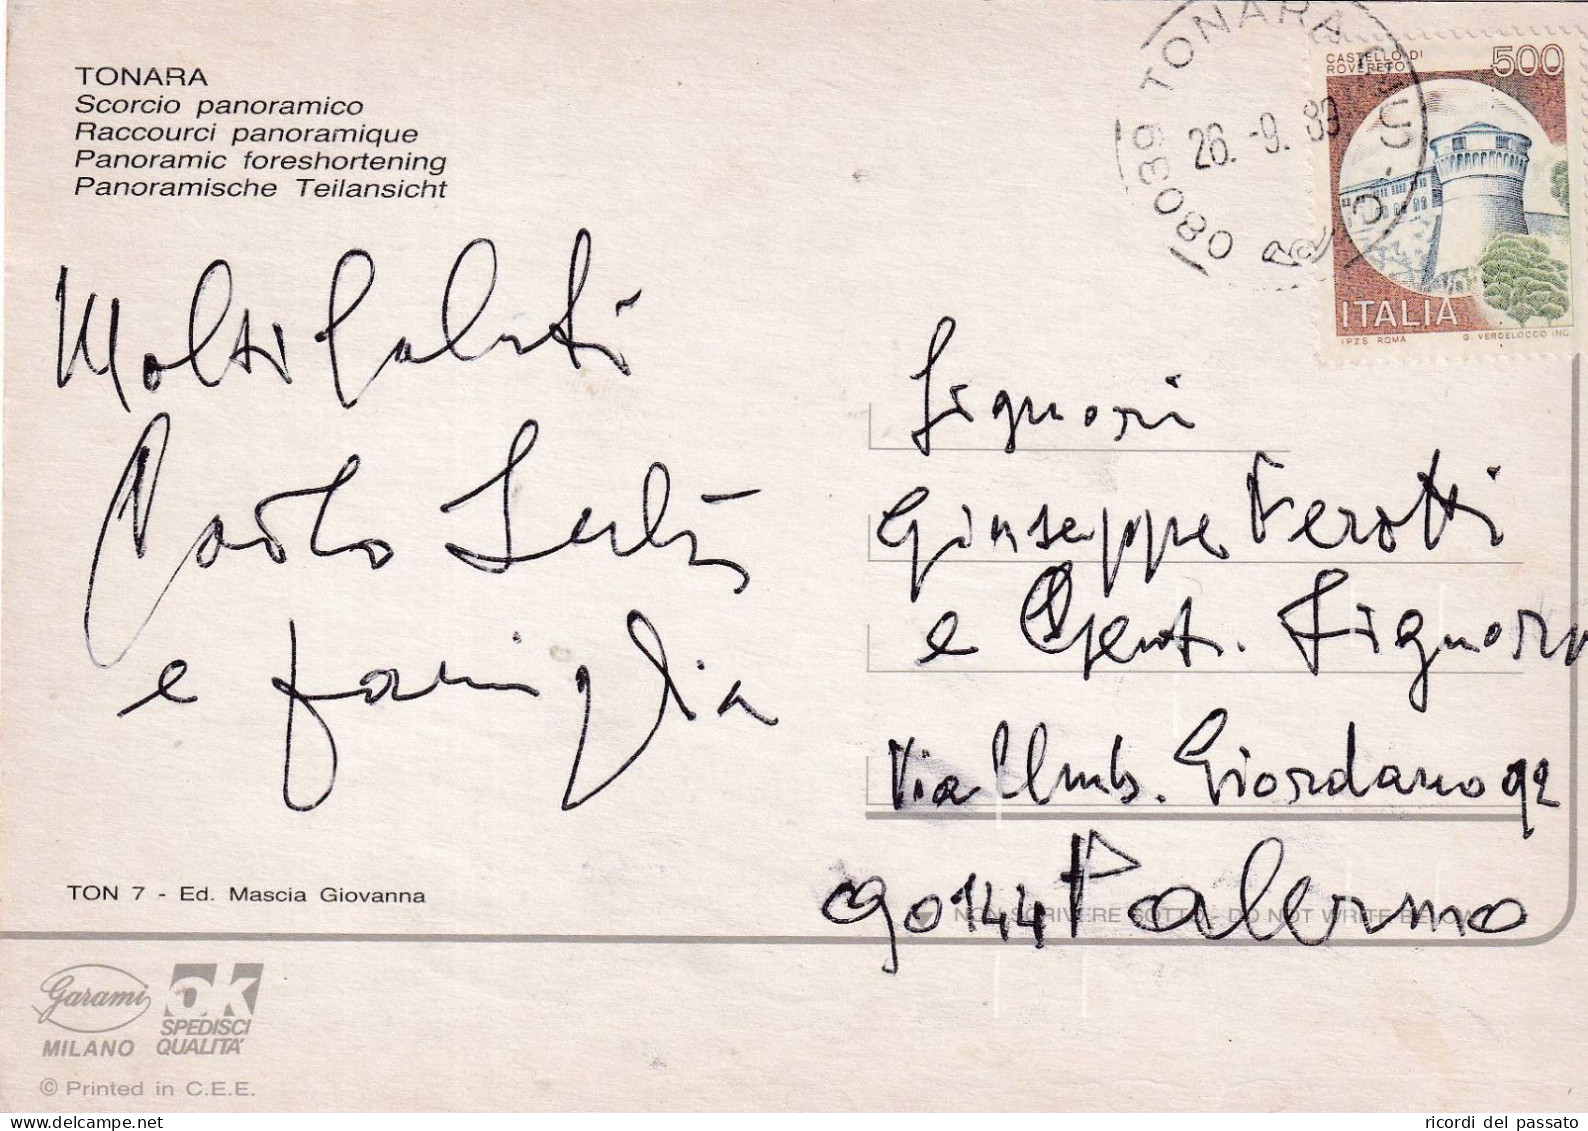 TONARA
Scorcio panoramico
Raccourci panoramique
Panoramic foreshortening
Panoramische Teilansicht
08039 TONARA
26.-9. 89
CASTELLO DI
ROVERETO
500
ITALIA
I.P.Z.S. ROMA G. VERDELOCCO INC.
Molti Saluti
Carlo
e famiglia
Signori
Giuseppe Ferotti
e Gent. Signora
Via Umb. Giordano 92
90144 Palermo
NON SCRIVERE SOTTO - DO NOT WRITE BELOW
TON 7 - Ed. Mascia Giovanna
Garami
MILANO
OK
SPEDISCI
QUALITÀ
© Printed in C.E.E.
ricordi del passato